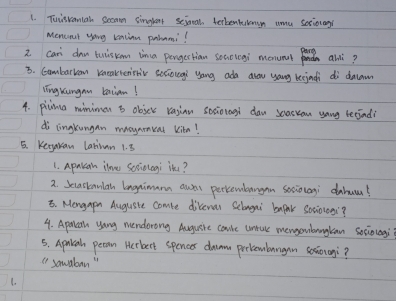 1. Tuliskanlah secara singkat sejarah terbentuknya ilmu sosiologi
Menurut yang kalian pahami!
2. Cari dan tuliskan lima pengertian sosiologi menurut para ahli?
3. Gambarkan karakteristik sosiologi yang ada atau yang terjadi di dalam
lingkungan kalian!
4. pilihla minimal 3 objek kajian sosiologi dan jelaskan yang terjadi
di lingkungan masyarakat kita!
5. Kerjakan Latihan 1.3
1. Apakah ilmu sosiologi itu?
2. Jelaskanlah bagaimana awal perkembangan sosiologi dahulu!
3. Mengapa Auguste Comte dikenal sebagai bapak sosiologi?
4. Apakah yang mendorong Auguste Comte untuk mengembangkan sosiologi?
5. Apakah peran Herbert Spencer dalam perkembangan sosiologi?
"Jawaban"
1.